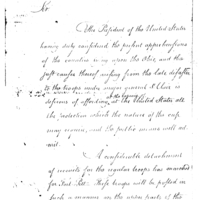 Sir
The President of the United States
having duly considered the present apprehensions
of the counties in upon the Ohio, and the
just causes thereof arising from the late defeat
to the troops under major general St Clair is
desirous of affording, at the United States all
the protection which the nature of the case
may require, and the public means will ad-
mit.
A considerable detachment
of recruits for the regular troops has marched
for Fort Pitt. These troops will be posted in
such a manner on the upper parts of the